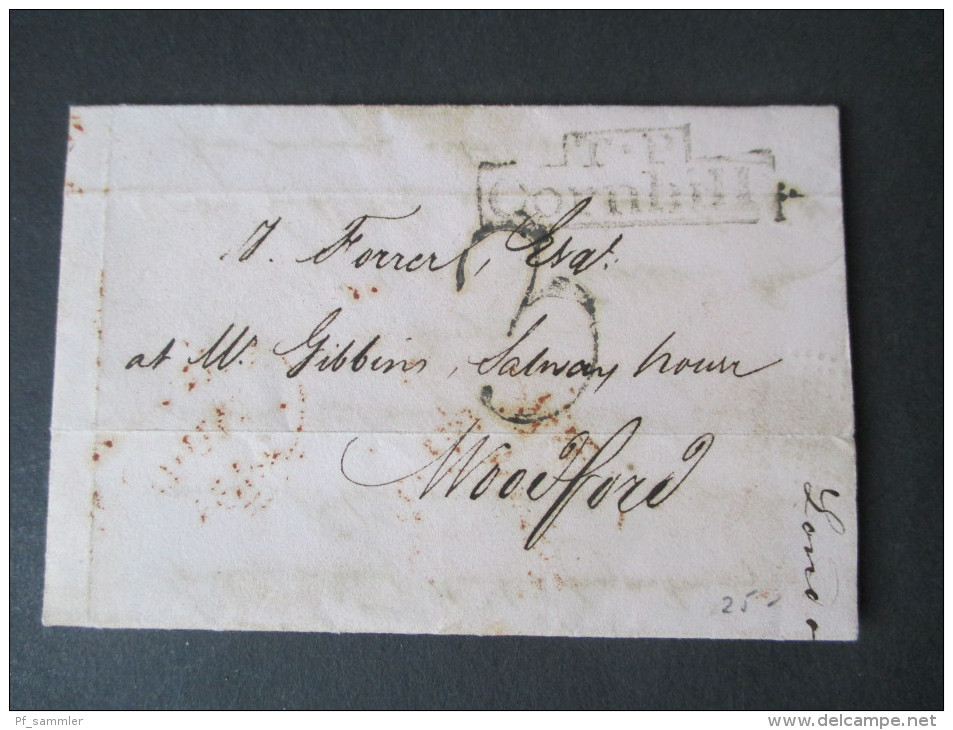 T.P
Cornhill
3
J. Forrer, Esqr.
at Mr. Gibbins, Salway house
Woodford
25-
Pf_sammler
www.delcampe.net